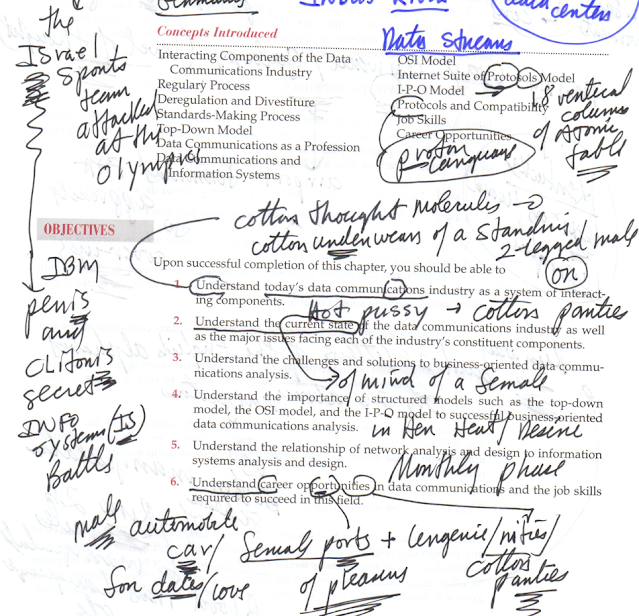 the
data
centers
Israel
Sports
team
attacked
at the
Olympics
Data Streams
Concepts Introduced
Interacting Components of the Data
Communications Industry
Regulary Process
Deregulation and Divestiture
Standards-Making Process
Top-Down Model
Data Communications as a Profession
Data Communications and
Information Systems
OSI Model
Internet Suite of Protosols Model
I-P-O Model
Protocols and Compatibility
Job Skills
Career Opportunities
18 vertical
columns
of atomic
table
proton
language
OBJECTIVES
cotton thought molecules
cotton underwears of a standing
2-legged male
on
Upon successful completion of this chapter, you should be able to
1. Understand today's data communications industry as a system of interact-
ing components.
Hot pussy → cotton panties
2. Understand the current state of the data communications industry as well
as the major issues facing each of the industry's constituent components.
3. Understand the challenges and solutions to business-oriented data commu-
nications analysis.
of mind of a female
4. Understand the importance of structured models such as the top-down
model, the OSI model, and the I-P-O model to successful business-oriented
data communications analysis.
in Her Heat/Desire
5. Understand the relationship of network analysis and design to information
systems analysis and design.
Monthly phase
6. Understand career opportunities in data communications and the job skills
required to succeed in this field.
IBM
penis
and
clitoris
secrets
INFO
systems (IS)
Battle
male automobile
car/
for dates/love
female ports +
of pleasure
lengerie/nities/
cotton
panties